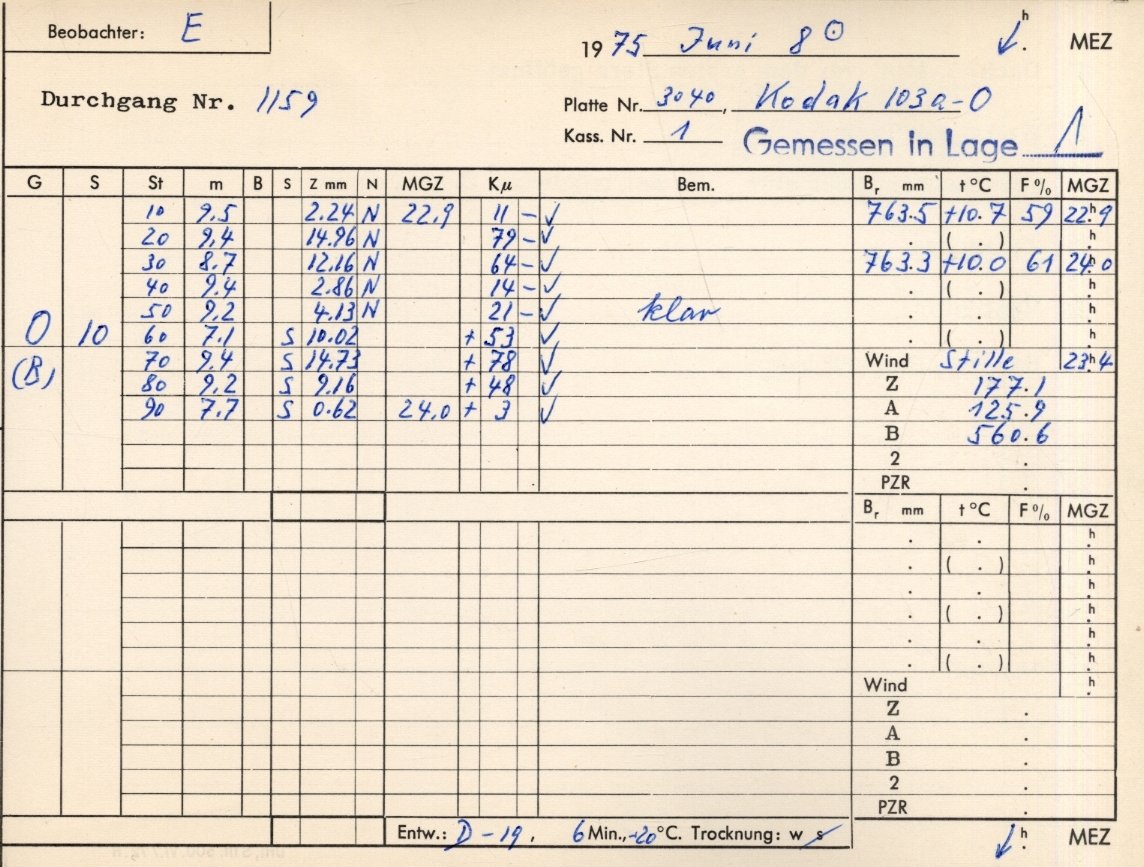 Beobachter: E
1975 Juni 8 ⊙ h. MEZ
Durchgang Nr. 1159
Platte Nr. 3040, Kodak 103a-O
Kass. Nr. 1 Gemessen in Lage 1
G S St m B S Z mm N MGZ Kμ Bem. Br mm t °C F % MGZ
10 9.5 2.24 N 22.9 11 - ✓ 763.5 +10.7 59 22h.9
20 9.4 14.96 N 79 - ✓ . ( . ) h.
30 8.7 12.16 N 64 - ✓ 763.3 +10.0 61 24h.0
40 9.4 2.86 N 14 - ✓ . ( . ) h.
50 9.2 4.13 N 21 - ✓ klar . . h.
0 10 60 7.1 S 10.02 + 53 ✓ . ( . ) h.
(B) 70 9.4 S 14.73 + 78 ✓ Wind Stille 23h.4
80 9.2 S 9.16 + 48 ✓ Z 177.1
90 7.7 S 0.62 24.0 + 3 ✓ A 125.9
B 560.6
2 .
PZR .
Br mm t °C F % MGZ
. . h.
. ( . ) h.
. . h.
. ( . ) h.
. . h.
. ( . ) h.
Wind h.
Z .
A .
B .
2 .
PZR .
Entw.: D-19, 6 Min., +20 °C. Trocknung: w s h. MEZ